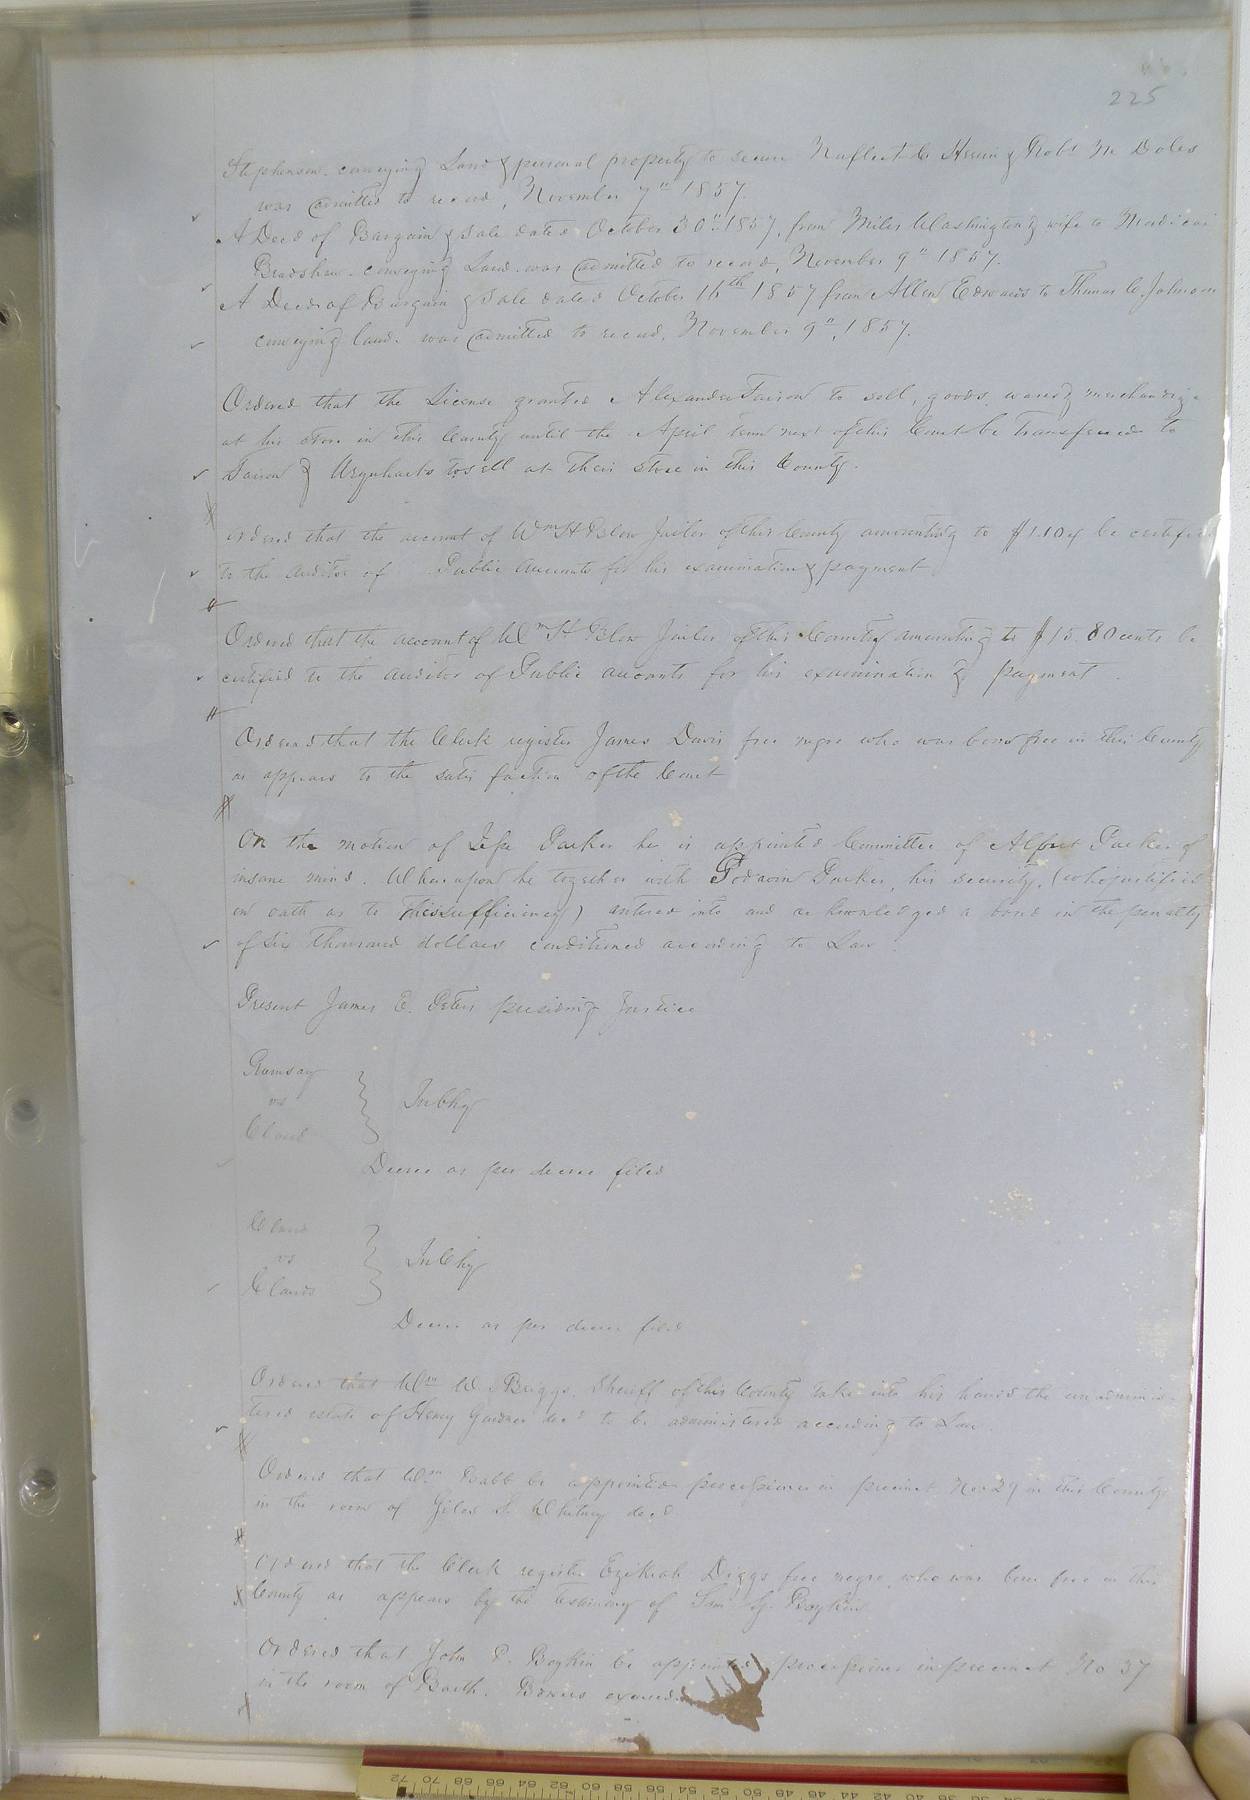 225
Stephenson conveying Land & personal property to secure & Robt M Doles
was admitted to record, November 7" 1857.
A Deed of Bargain & Sale dated October 30" 1857, from Miles Washington & wife to
Bradshaw conveying Land was admitted to record, November 9" 1857.
A Deed of Bargain & Sale dated October 16th 1857 from Allen Edwards to Thomas C. Johnson
conveying land was admitted to record, November 9", 1857.
Ordered that the License granted Alexander Faison to sell, goods, wares & merchandize
at his store in this County until the April term next of this Court be transferred to
Faison & Urquharts to sell at their store in this County.
Ordered that the account of Wm H Blow Jailor of this County amounting to be certified
to the Auditor of Public Accounts for his examination & payment
Ordered that the account of Wm H Blow Jailor of this County amounting to $15.80 cents be
certified to the auditor of Public accounts for his examination & payment.
Ordered that the Clerk register James Davis free negro who was born free in this County
as appears to the satisfaction of the Court
On the motion of Parker he is appointed Committee of Parker of
insane mind. Whereupon he together with Parker, his security, (who justified
on oath as to his sufficiency) entered into and acknowledged a bond in the penalty
of Six thousand dollars conditioned according to Law.
Present James E. Peters presiding Justice
Ramsay
vs
Claud
In Chy
Decree as per decree filed
Claud
vs
Clauds
In Chy
Decree as per decree filed
Ordered that Wm W Briggs, Sheriff of this County take into his hands the unadminis-
tered estate of Henry Gardner decd to be administered according to Law.
Ordered that Wm Babb be appointed processioner in precinct No 29 in this County
in the room of Giles S. Whitney decd
Ordered that the Clerk register Ezekiah Diggs free negro, who was born free in this
County as appears by the testimony of Boykin
Ordered that John P. Boykin be appointed processioner in precinct No 37
in the room of Barth. excused.
72 70 68 66 64 62 60 58 56 54 52 50 48 46 44 42 40 38